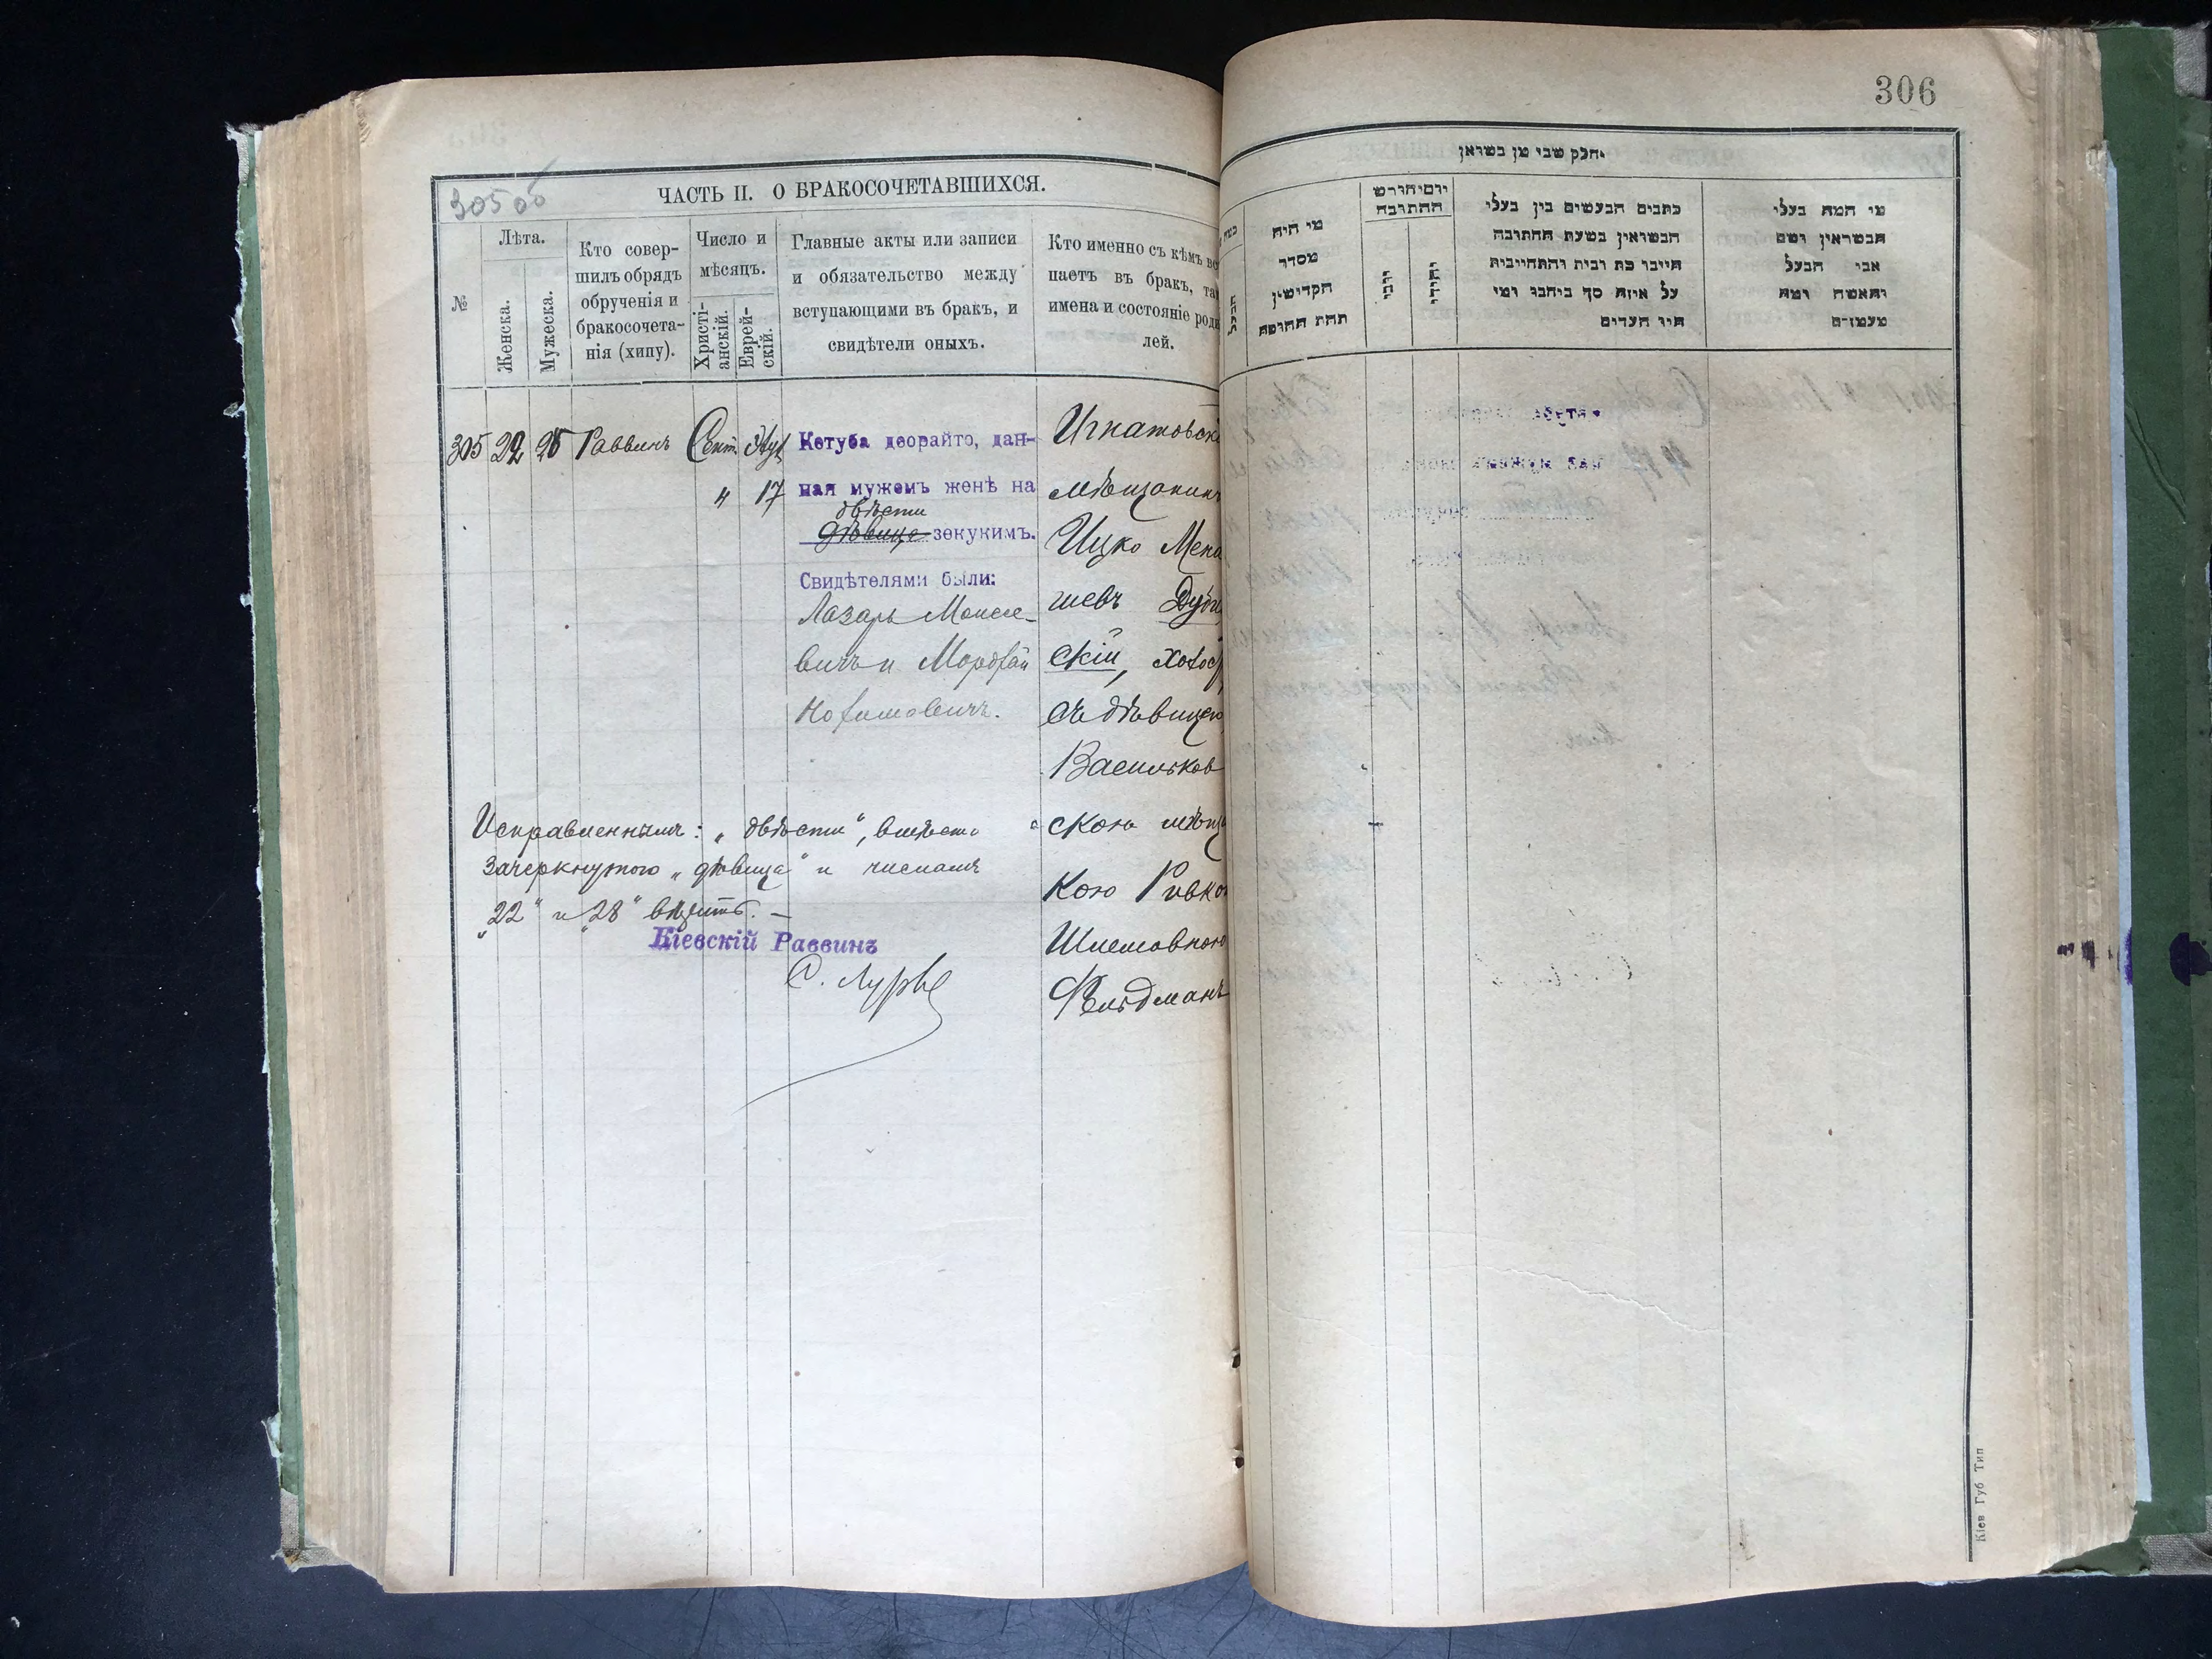 305 об
ЧАСТЬ II. О БРАКОСОЧЕТАВШИХСЯ.
№
Лѣта.
Женска.
Мужеска.
Кто совер-
шилъ обрядъ
обрученія и
бракосочета-
нія (хипу).
Число и
мѣсяцъ.
Христі-
анскій.
Еврей-
скій.
Главные акты или записи
и обязательство между
вступающими въ бракъ, и
свидѣтели оныхъ.
Кто именно съ кѣмъ вс
паетъ въ бракъ, та
имена и состояніе роди
лей.
305 22 28 Раввинъ Сент. 4
17
Кетуба деорайто, дан-
ная мужемъ женѣ на
двѣсти
дѣвице зекукимъ.
Свидѣтелями были:
Лазарь Моисе-
вичъ и Мордхай
Игнатовск
мѣщанинъ
Ицко Мена
шевъ Дуби
скій, холос
съ дѣвицею
Васильков
скою мѣща
кою Ривко
Шлемовною
Фельдманъ
Исправленнымъ: „двѣсти“, вмѣсто
зачеркнутого „дѣвица“ и числамъ
„22“ и „28“ вѣрить. —
Кіевскій Раввинъ
С. Лурье
306
חלק שני מן נשואין
מי היה
מסדר
הקדישין
תחת החופה
יום יחודש
ההתונה
נוצרי
יהודי
כתבים הנעשים בין בעלי
הנשואין בשעת החתונה
חייבו כח ובית והתחייבות
על איזה סך ניתנו ומי
היו העדים
מי המה בעלי
הנשואין ושם
אבי הבעל
והאשה ומה
מעמדם
Кіев Губ Тип